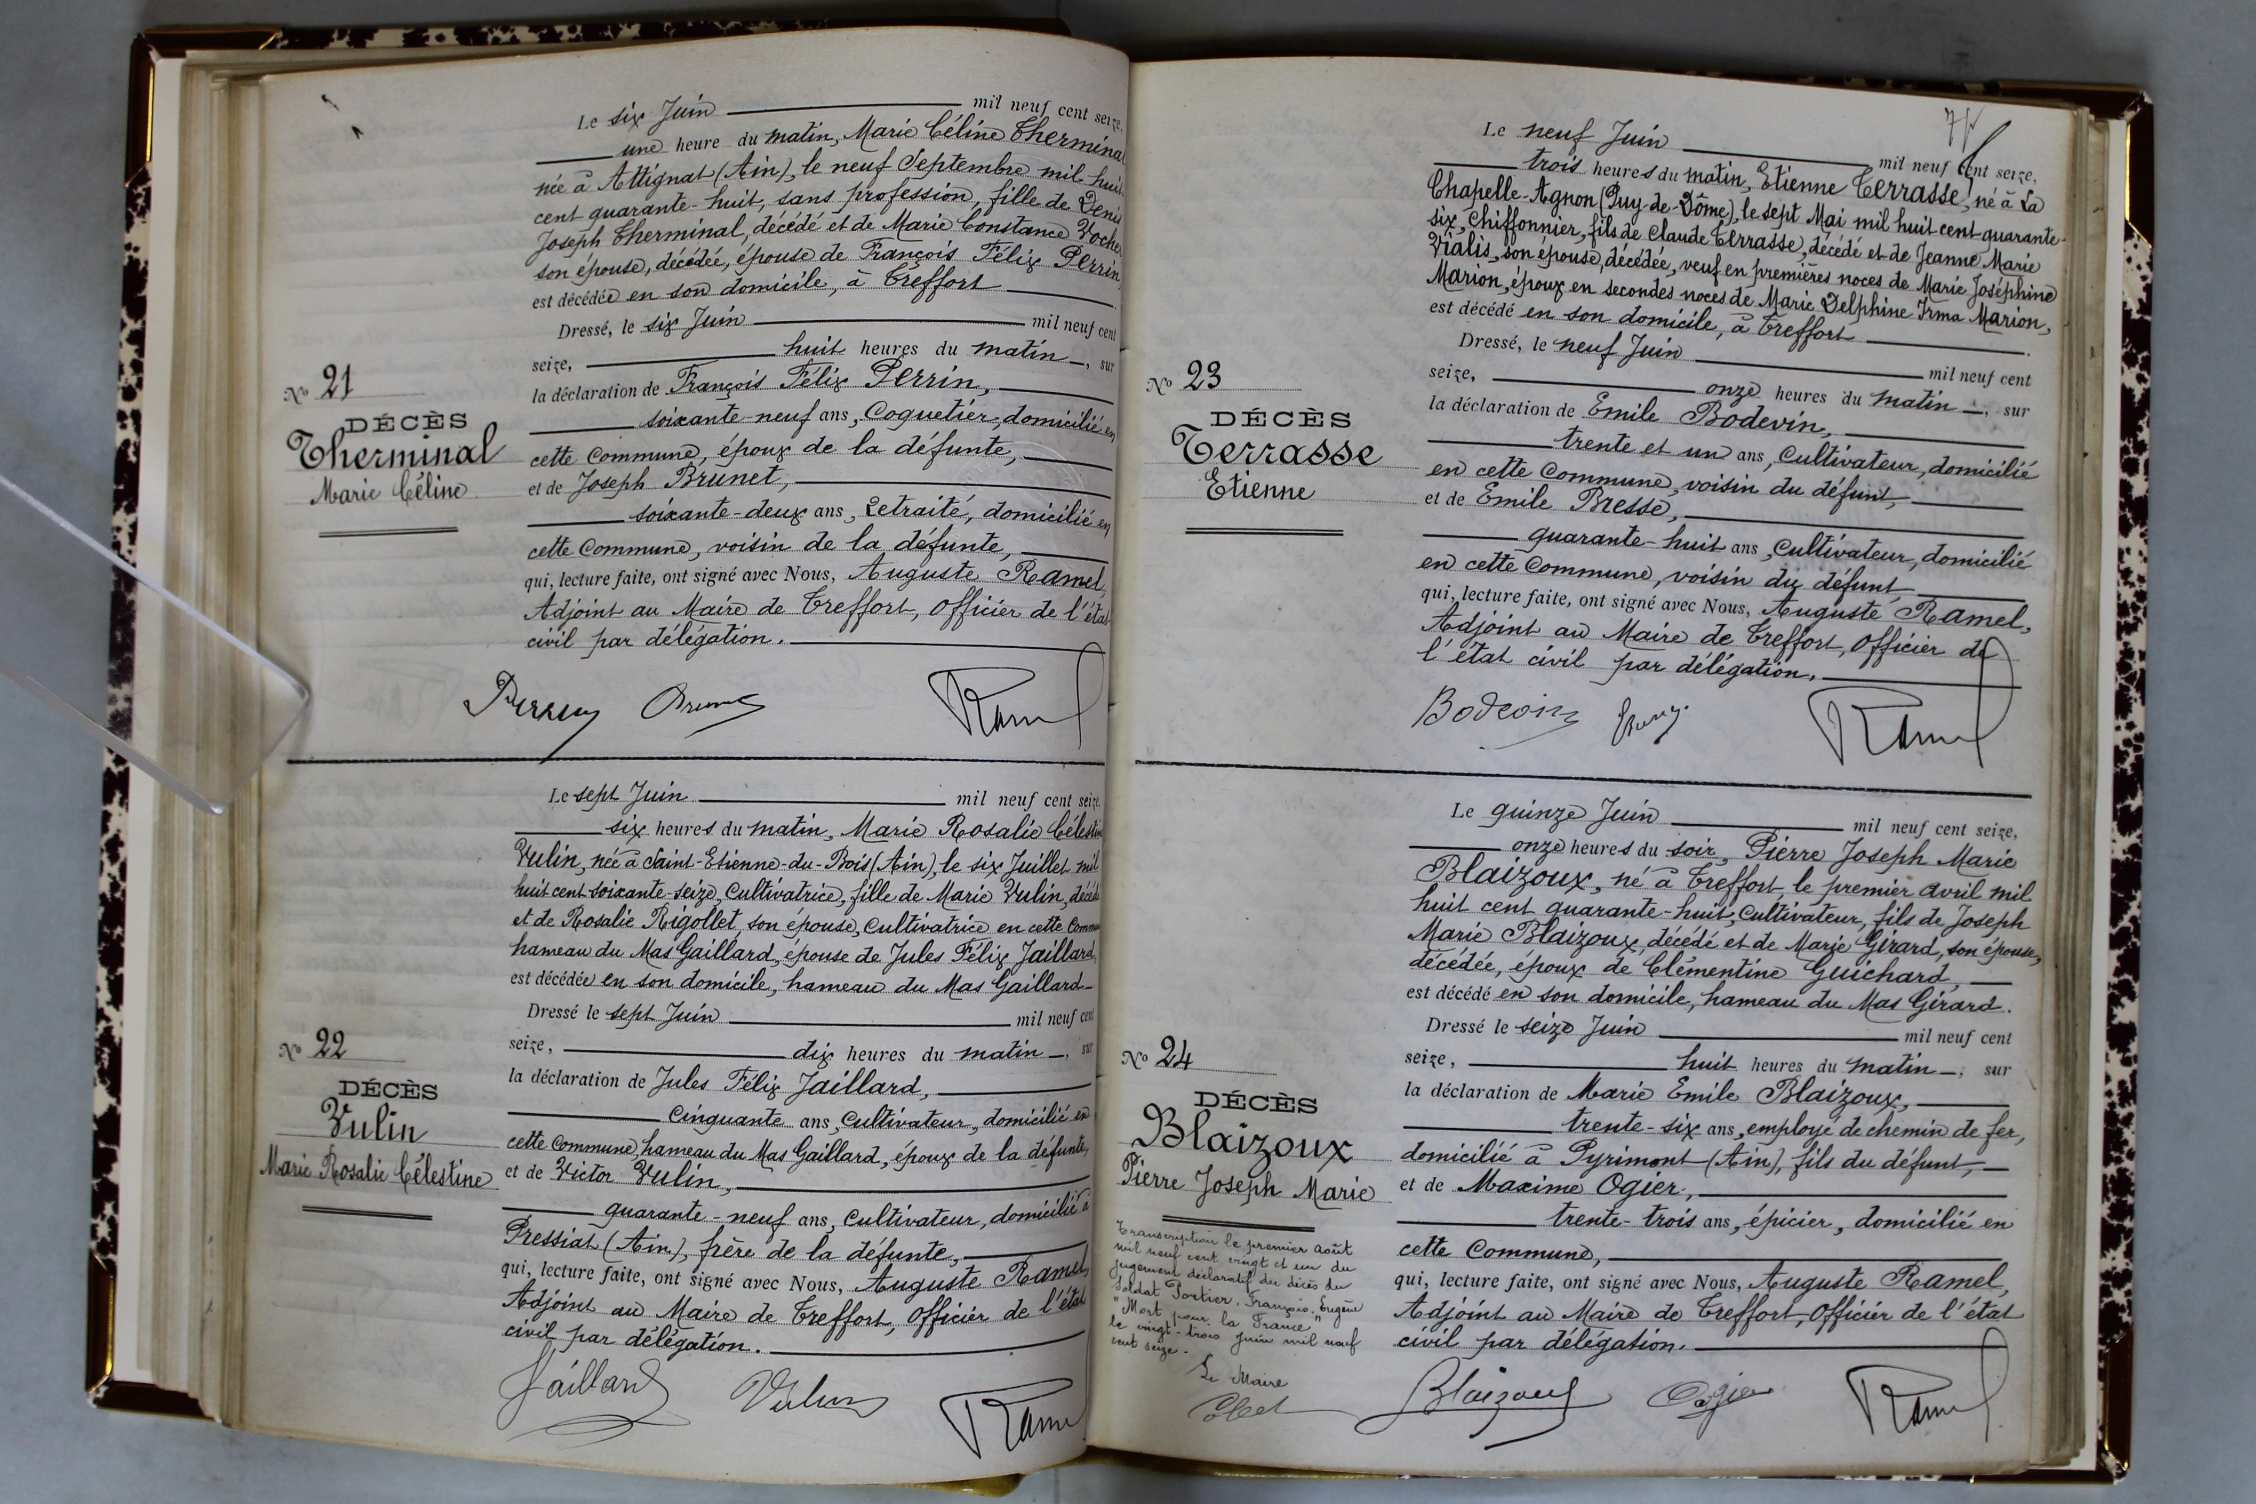 Le six Juin mil neuf cent seize,
une heure du matin, Marie Céline Therminal
née à Attignat (Ain), le neuf Septembre mil huit
cent quarante-huit, sans profession, fille de Denis
Joseph Therminal, décédé et de Marie Constance
son épouse, décédée, épouse de François Félix Perrin
est décédée en son domicile, à Treffort
Dressé, le six Juin mil neuf cent
seize, huit heures du matin, sur
la déclaration de François Félix Perrin,
soixante-neuf ans, Coquetier, domicilié en
cette Commune, époux de la défunte,
et de Joseph Brunet,
soixante-deux ans, Retraité, domicilié en
cette Commune, voisin de la défunte,
qui, lecture faite, ont signé avec Nous, Auguste Ramel,
Adjoint au Maire de Treffort, Officier de l'état
civil par délégation.
No 21
DÉCÈS
Therminal
Marie Céline
Perrin Brunet Ramel
Le sept Juin mil neuf cent seize,
six heures du matin, Marie Rosalie Célestine
Vulin, née à Saint-Etienne-du-Bois (Ain), le six Juillet mil
huit cent soixante-seize, Cultivatrice, fille de Marie Vulin, décédé
et de Rosalie Rigollet, son épouse, Cultivatrice en cette Commune
hameau du Mas Gaillard, épouse de Jules Félix Jaillard,
est décédée en son domicile, hameau du Mas Gaillard
Dressé le sept Juin mil neuf cent
seize, dix heures du matin, sur
la déclaration de Jules Félix Jaillard,
Cinquante ans, Cultivateur, domicilié en
cette Commune, hameau du Mas Gaillard, époux de la défunte,
et de Victor Vulin,
quarante-neuf ans, Cultivateur, domicilié à
Pressiat (Ain), frère de la défunte,
qui, lecture faite, ont signé avec Nous, Auguste Ramel,
Adjoint au Maire de Treffort, Officier de l'état
civil par délégation.
No 22
DÉCÈS
Vulin
Marie Rosalie Célestine
Jaillard Vulin Ramel
Le neuf Juin mil neuf cent seize,
trois heures du matin, Etienne Terrasse, né à La
Chapelle-Agnon (Puy-de-Dôme), le sept Mai mil huit cent quarante-
six, Chiffonnier, fils de Claude Terrasse, décédé et de Jeanne Marie
Vialis, son épouse, décédée, veuf en premières noces de Marie Joséphine
Marion, époux en secondes noces de Marie Delphine Irma Marion,
est décédé en son domicile, à Treffort
Dressé, le neuf Juin mil neuf cent
seize, onze heures du matin, sur
la déclaration de Emile Bodevin,
trente et un ans, Cultivateur, domicilié
en cette Commune, voisin du défunt,
et de Emile Bresse,
quarante-huit ans, Cultivateur, domicilié
en cette Commune, voisin du défunt,
qui, lecture faite, ont signé avec Nous, Auguste Ramel,
Adjoint au Maire de Treffort, Officier de
l'état civil par délégation.
No 23
DÉCÈS
Terrasse
Etienne
Bodevin Ramel
Le quinze Juin mil neuf cent seize,
onze heures du soir, Pierre Joseph Marie
Blaizoux, né à Treffort le premier avril mil
huit cent quarante-huit, Cultivateur, fils de Joseph
Marie Blaizoux, décédé et de Marie Girard, son épouse,
décédée, époux de Clémentine Guichard,
est décédé en son domicile, hameau du Mas Girard.
Dressé le seize Juin mil neuf cent
seize, huit heures du matin, sur
la déclaration de Marie Emile Blaizoux,
trente-six ans, employé de chemin de fer,
domicilié à Pyrimont (Ain), fils du défunt,
et de Maxime Ogier,
trente-trois ans, épicier, domicilié en
cette Commune,
qui, lecture faite, ont signé avec Nous, Auguste Ramel,
Adjoint au Maire de Treffort, Officier de l'état
civil par délégation.
No 24
DÉCÈS
Blaizoux
Pierre Joseph Marie
Transcription le premier août
mil neuf cent vingt et un du
jugement déclaratif du décès du
Soldat Portier, François, Eugène
"Mort pour la France"
le vingt-trois juin mil neuf
cent seize.
Le Maire
Blaizoux Ogier Ramel